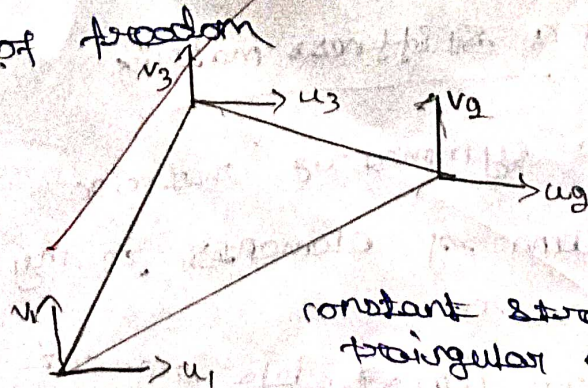 of freedom
v3
u3
v2
u2
v1
u1
constant
traingular